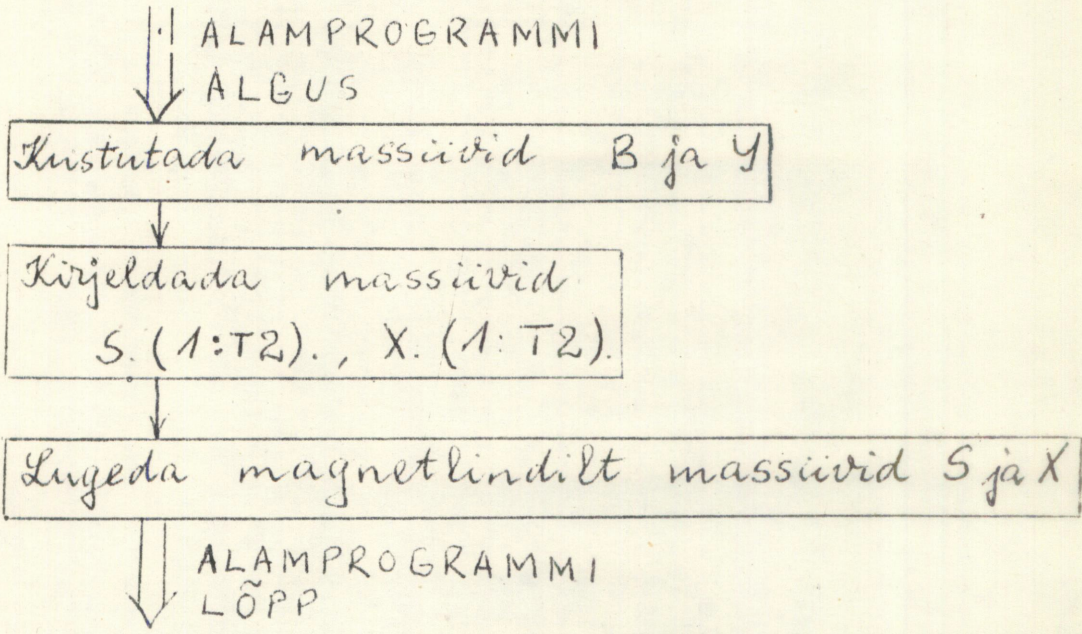 ALAMPROGRAMMI
ALGUS
Kustutada massiivid B ja Y
Kirjeldada massiivid
S.(1:T2)., X.(1:T2).
Lugeda magnetlindilt massiivid S ja X
ALAMPROGRAMMI
LÕPP